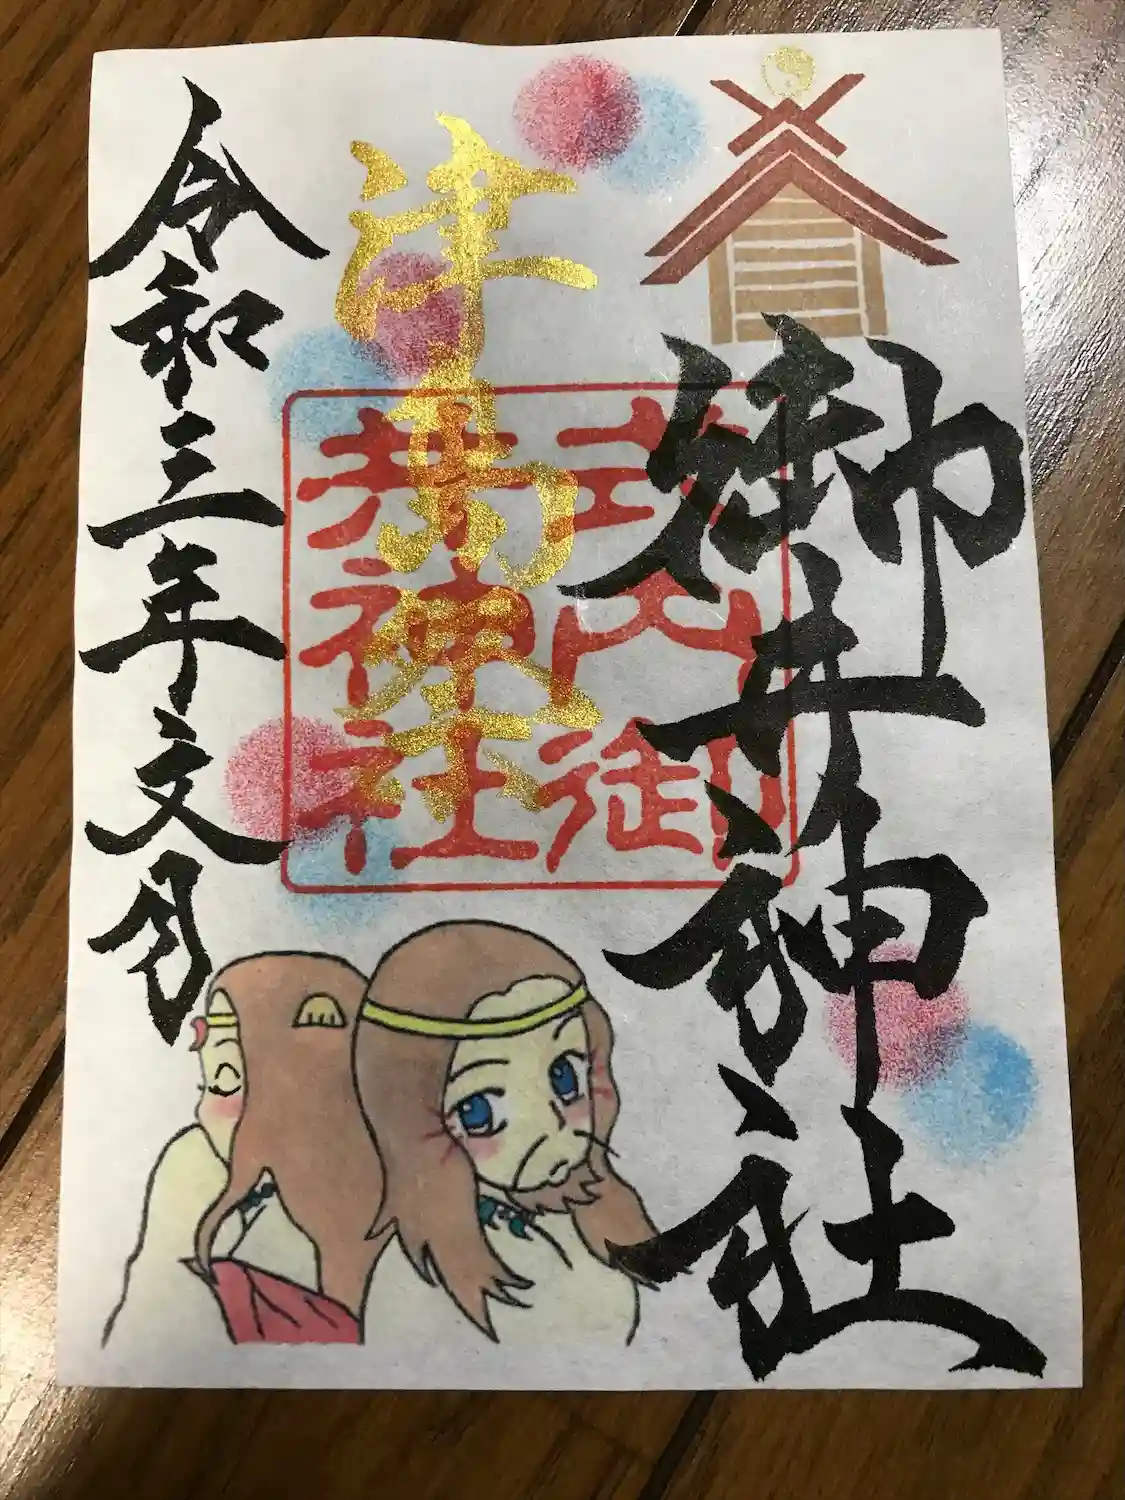 御井神社
津島祭
式内御
井神社
令和三年文月